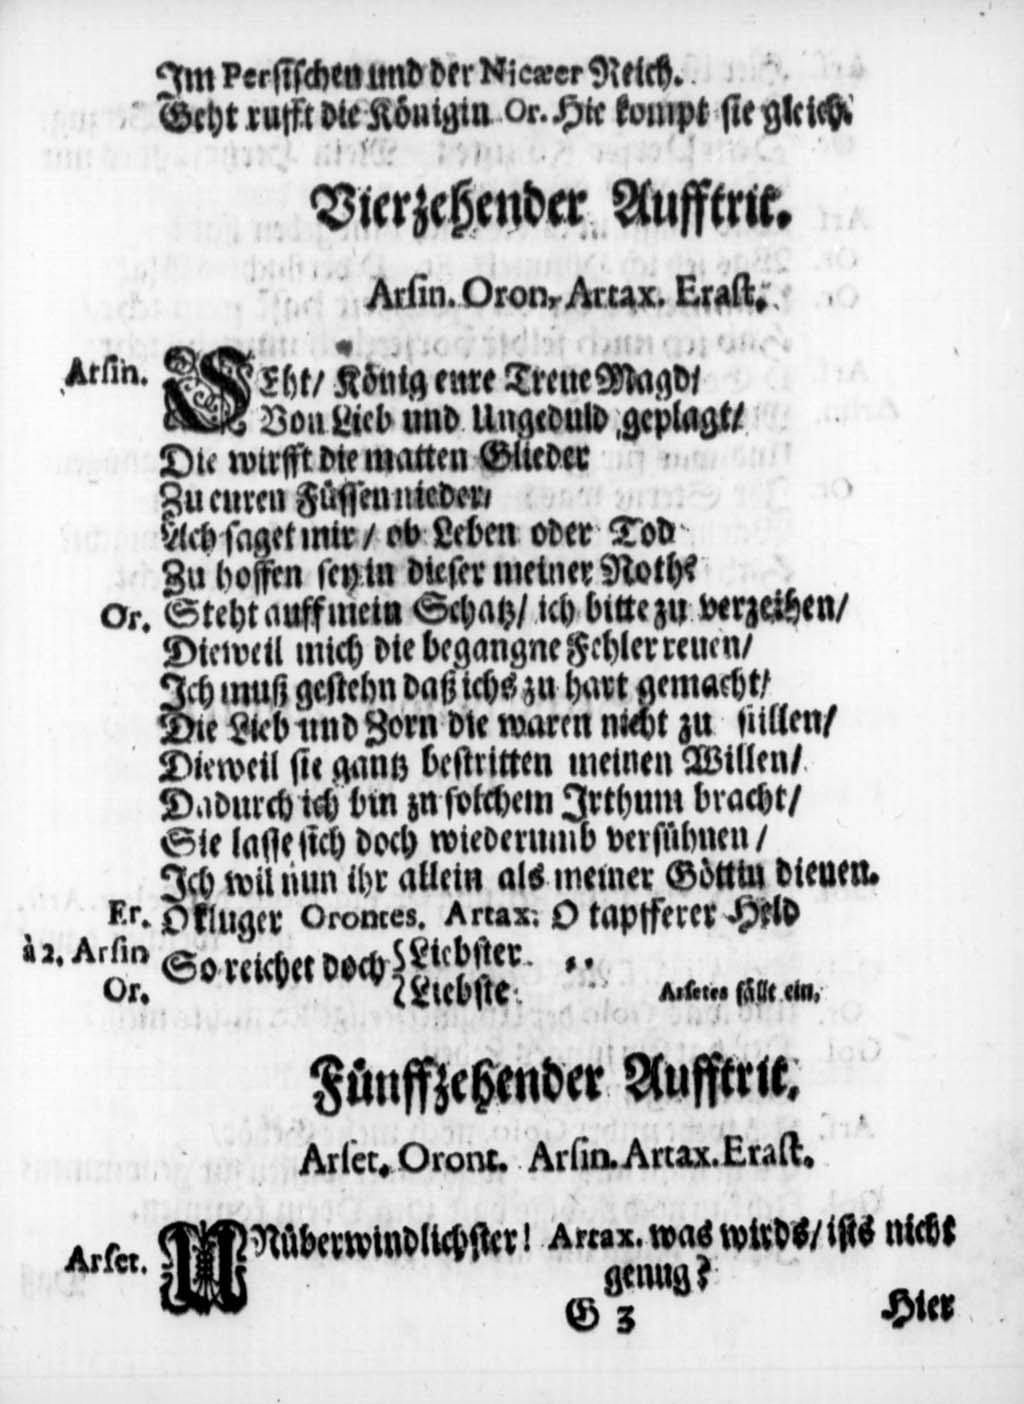 Im Persischen und der Nicæer Reich.
Geht rufft die Königin Or. Hie kompt sie gleich.
Vierzehender Aufftrit.
Arsin. Oron. Artax. Erast.
Arsin. SEht/ König eure Treue Magd/
Von Lieb und Ungeduld geplagt/
Die wirfft die matten Glieder
Zu euren Füssen nieder/
Ach saget mir/ ob Leben oder Tod
Zu hoffen sey in dieser meiner Noth?
Or. Steht auff mein Schatz/ ich bitte zu verzeihen/
Dieweil mich die begangne Fehler reuen/
Ich muß gestehn daß ichs zu hart gemacht/
Die Lieb und Zorn die waren nicht zu stillen/
Dieweil sie gantz bestritten meinen Willen/
Dadurch ich bin zu solchem Irthum bracht/
Sie lasse sich doch wiederumb versühnen/
Ich wil nun ihr allein als meiner Göttin dienen.
Er. O kluger Orontes. Artax: O tapfferer Held
à 2. Arsin So reichet doch {Liebster.
Or. {Liebste. Arsetes fällt ein.
Fünffzehender Aufftrit.
Arset. Oront. Arsin. Artax. Erast.
Arset. UNüberwindlichster! Artax. was wirds/ ists nicht
genug?
G 3 Hier